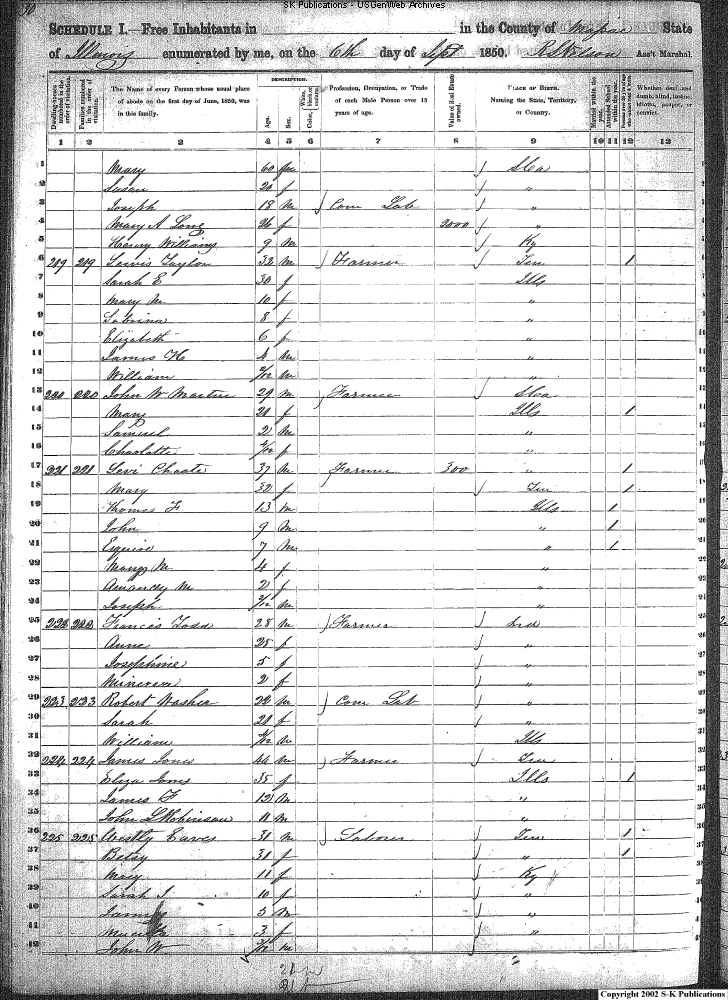 SK Publications - USGenWeb Archives
SCHEDULE I.—Free Inhabitants in in the County of State
of Illinois enumerated by me, on the 6th day of Sept 1850. Ass't Marshal.
DESCRIPTION.
Dwelling-houses numbered in the order of visitation. Families numbered in the order of visitation. The Name of every Person whose usual place of abode on the first day of June, 1850, was in this family. Age. Sex. Color, White, black, or mulatto. Profession, Occupation, or Trade of each Male Person over 15 years of age. Value of Real Estate owned. PLACE OF BIRTH. Naming the State, Territory, or Country. Married within the year. Attended School within the year. Whether deaf and dumb, blind, insane, idiotic, pauper, or convict.
1 2 3 4 5 6 7 8 9 10 11 12 13
1 Mary 60
2 Susan 20 f "
3 Joseph 18 m Com Lab "
4 Mary A Long 26 f 2000 "
5 Henry Williams 9 m Ky
6 219 219 Lewis Taylor 32 m Farmer Ten 1
7 Sarah E 30 f Ills
8 Mary M 10 f "
9 Sabrina 8 f "
10 Elizabeth 6 f "
11 James H 4 m "
12 William /12 m "
13 220 220 John W Martin 29 m Farmer
14 Mary 20 f Ills 1
15 Samuel 2 m "
16 Charlotte /12 f "
17 221 221 Levi Choate 37 m Farmer 300 " 1
18 Mary 32 f Ten 1
19 Thomas F 13 m Ills 1
20 John 9 m " 1
21 Esquire 7 m " 1
22 Mary M 4 f "
23 Amandy M 2 f "
24 Joseph /12 m "
25 222 222 Francis Todd 28 m Farmer Ind
26 Anne 25 f "
27 Josephine 5 f "
28 Minerva 2 f "
29 223 223 Robert 22 m Com Lab "
30 Sarah 20 f "
31 William /12 m Ills
32 224 224 James Jones 44 m Farmer Ten
33 Eliza Jones 35 f Ills 1
34 James F 12 m "
35 John L Robinson 11 m "
36 225 225 Westly Eaves 31 m Laborer Ten 1
37 Betsy 31 f " 1
38 Mary 11 f Ky
39 Sarah J 10 f "
40 5 m "
41 3 f "
42 John W /12 m
Copyright 2002 S-K Publications